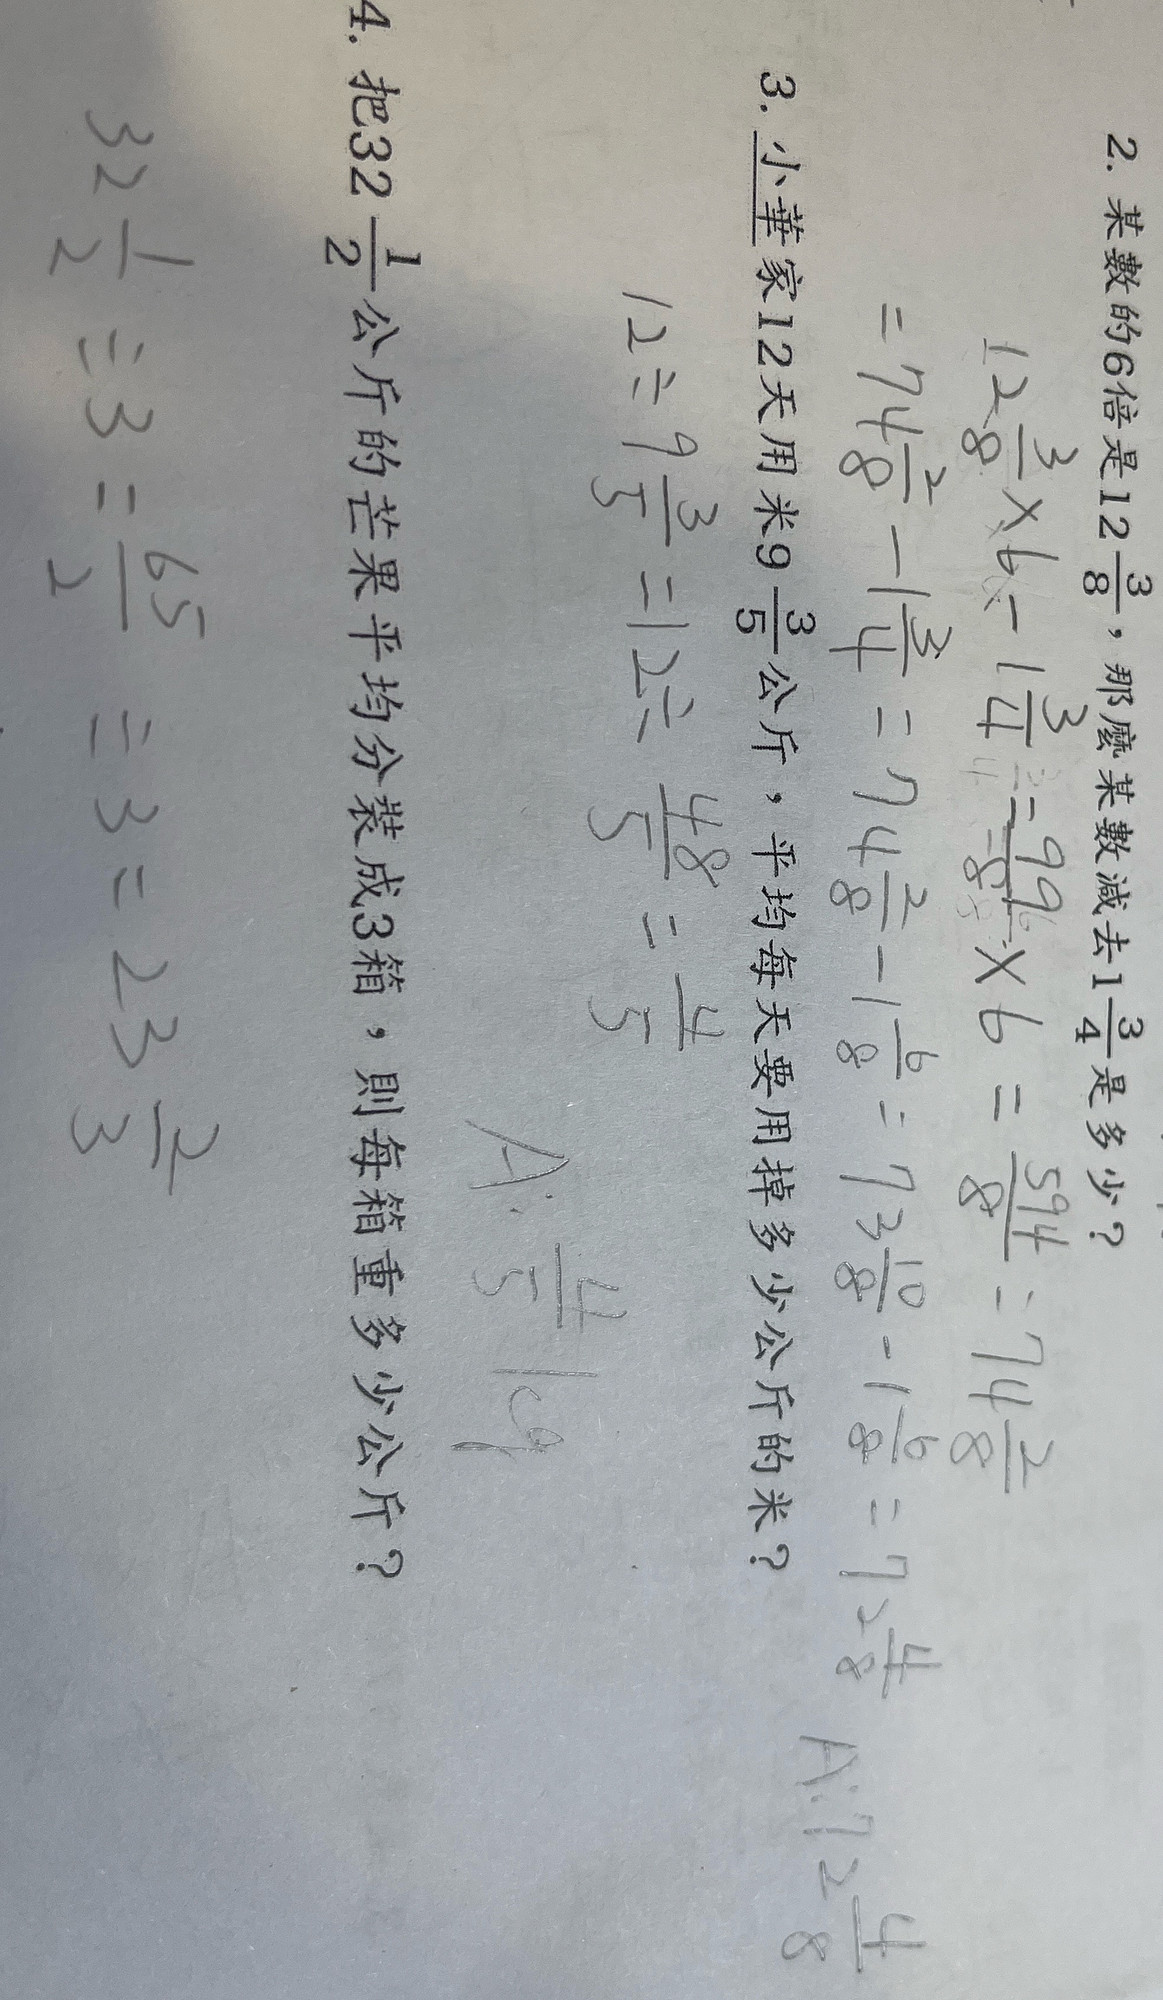 2. 某數的6倍是12 3/8，那麼某數減去1 3/4是多少？
12 3/8 × 6 - 1 3/4 = 99/8 × 6 = 594/8 = 74 2/8
= 74 2/8 - 1 3/4 = 74 2/8 - 1 6/8 = 73 10/8 - 1 6/8 = 72 4/8
A: 72 4/8
3. 小華家12天用米9 3/5公斤，平均每天要用掉多少公斤的米？
12 ÷ 9 3/5 = 12 ÷ 48/5 = 4/5
A: 4/5 kg
4. 把32 1/2公斤的芒果平均分裝成3箱，則每箱重多少公斤？
32 1/2 ÷ 3 = 65/2 ÷ 3 = 23 2/3